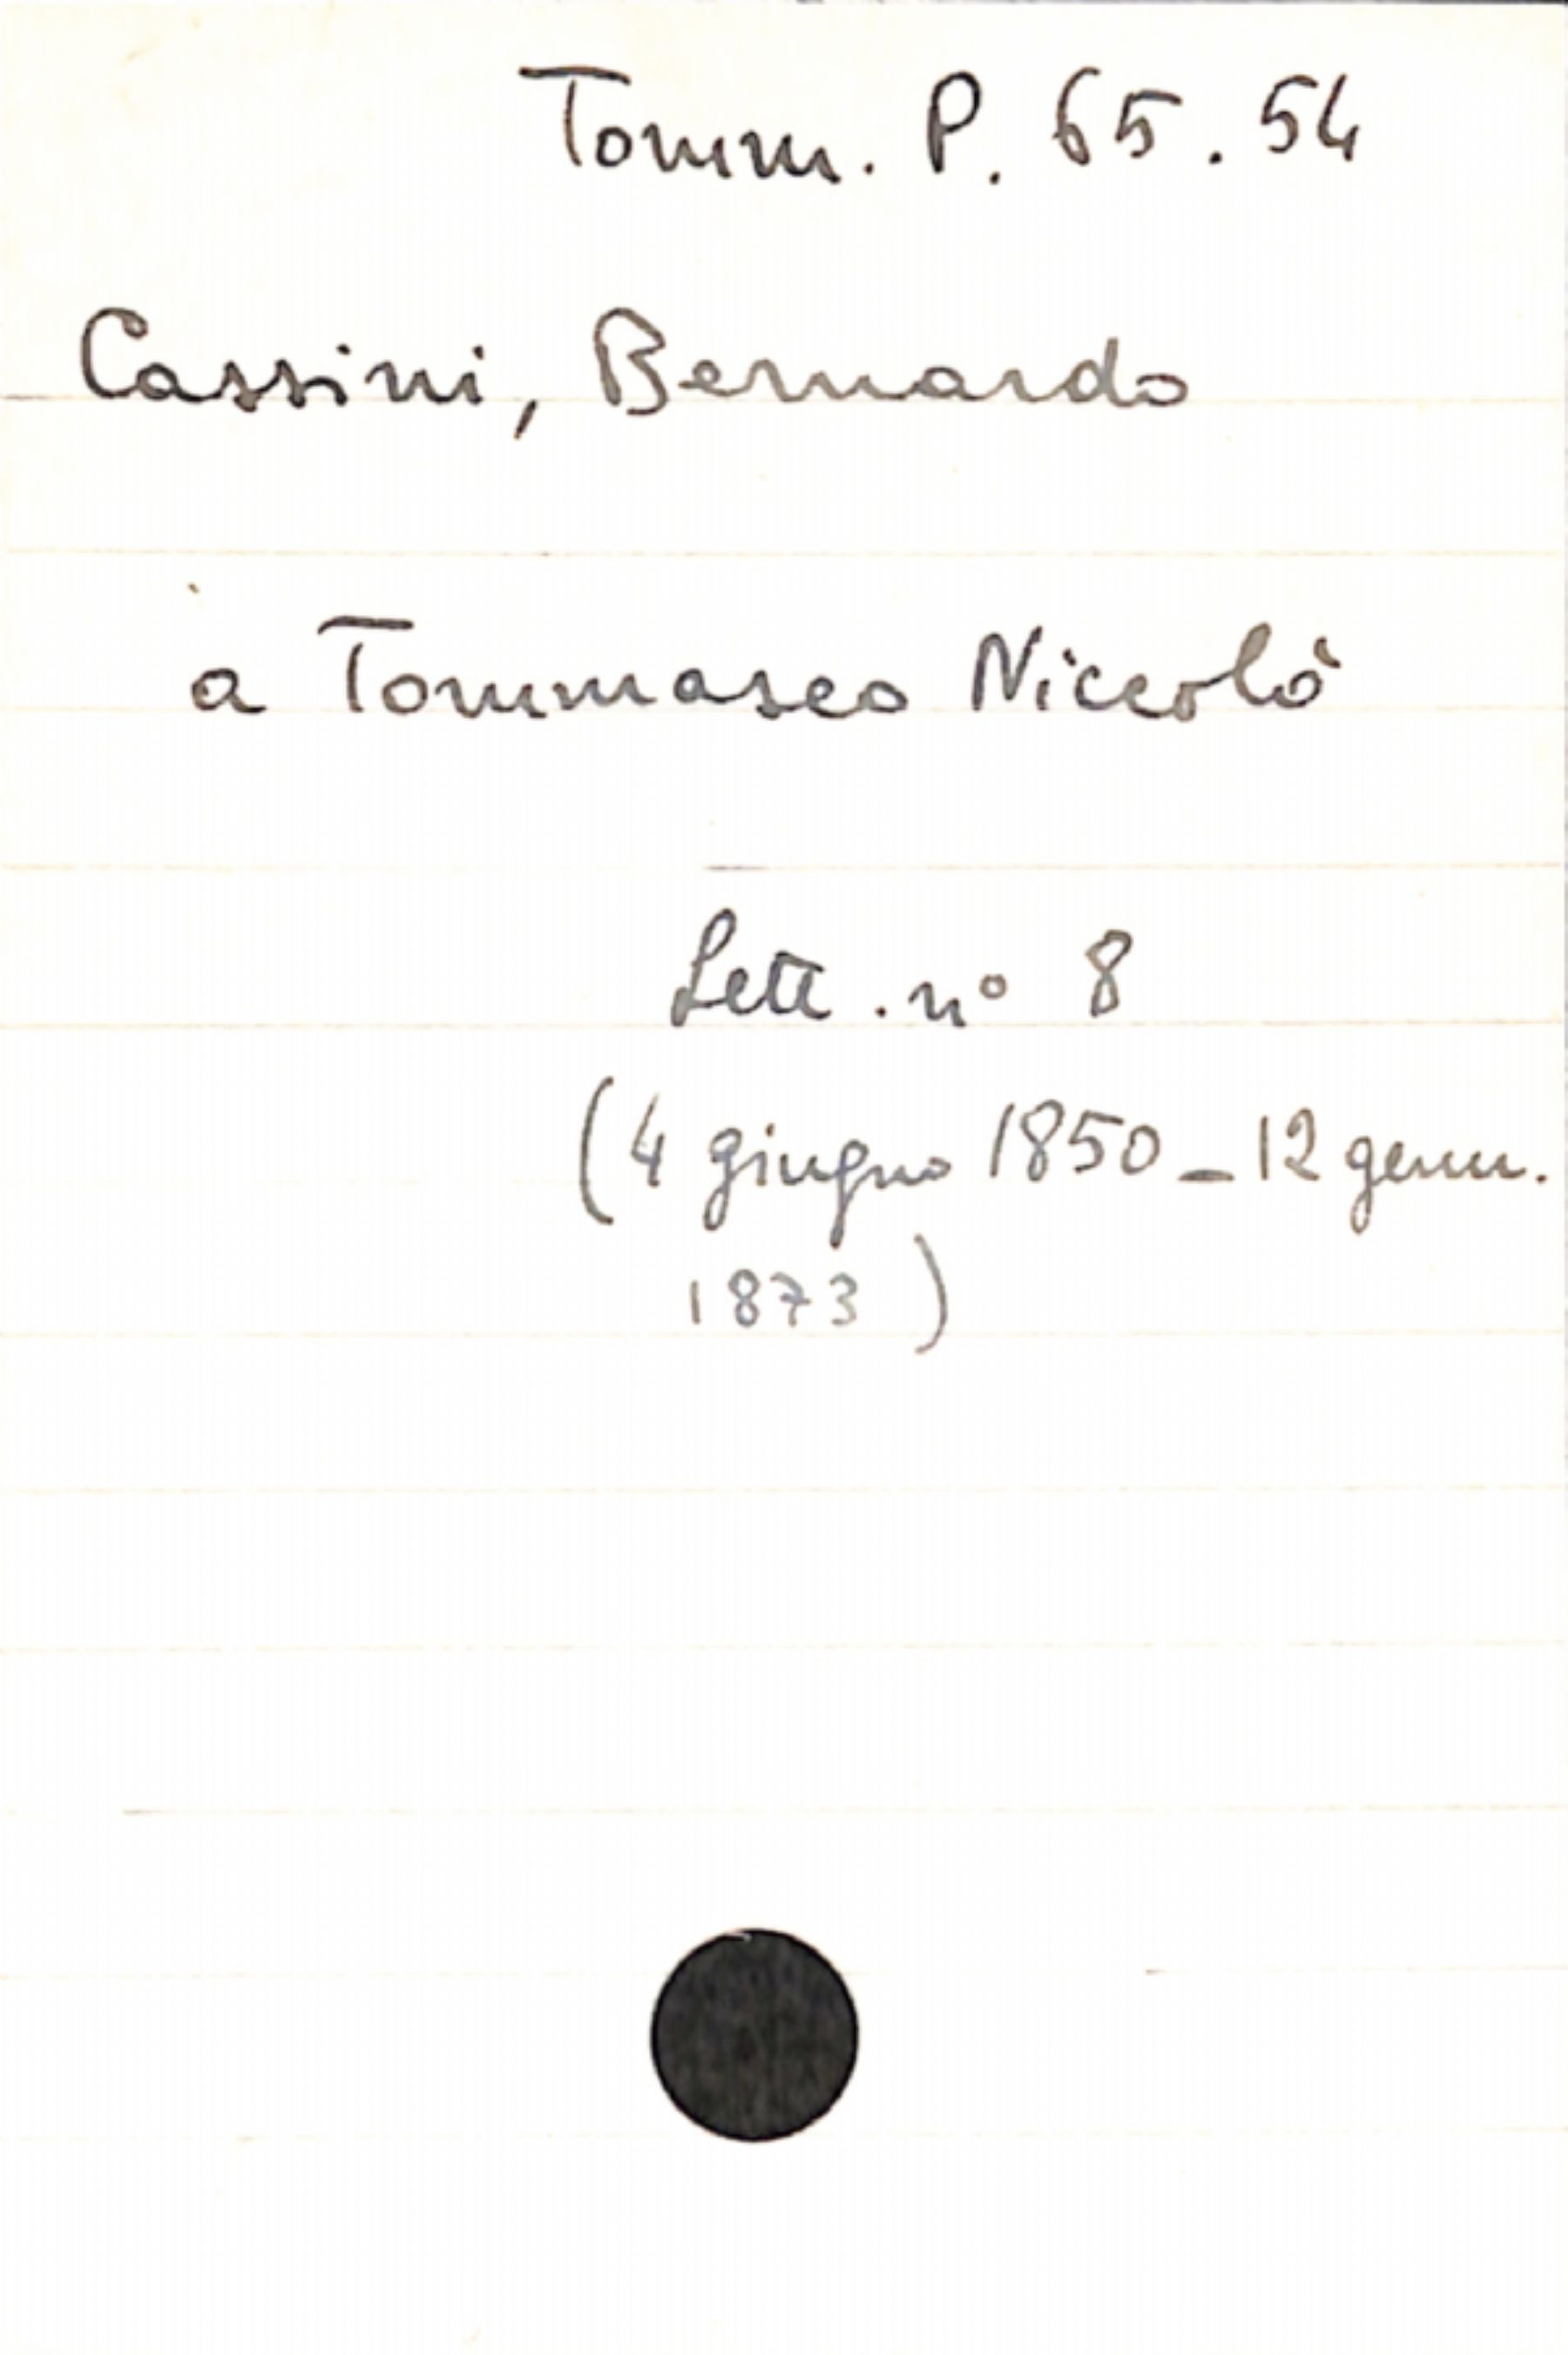 Tomm. P. 65. 54
Cassini, Bernardo
a Tommaseo Niccolò
Lett. n° 8
(4 giugno 1850 - 12 genn.
1873)